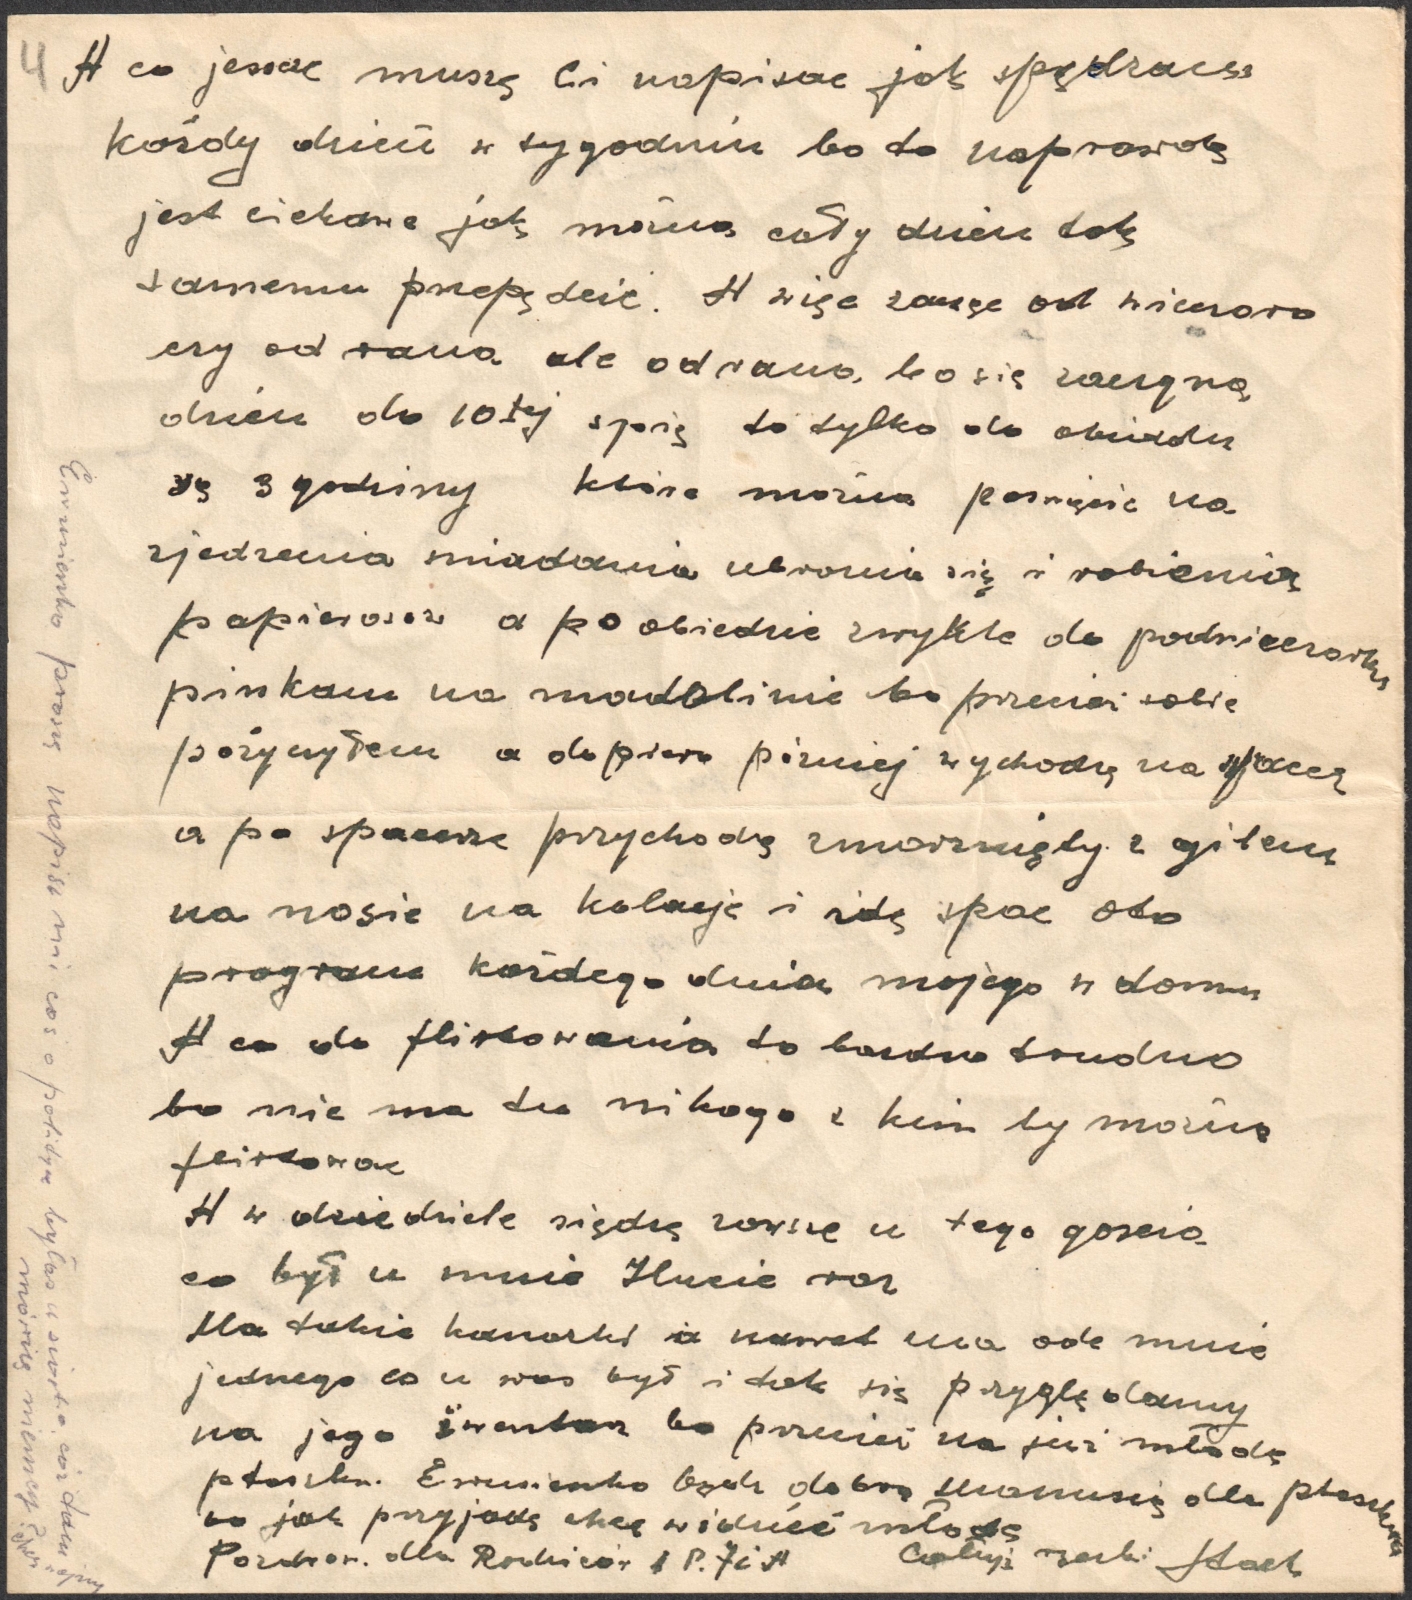 4
A co jeszcze muszę Ci napisac jak spędzacz
każdy dzień w tygodniu bo to naprawdę
jest ciekawe jak można cały dzien tak
samemu przepędzić. A więc zacznę od wieczora
czy od rana ale od rana bo się zaczyna
dzień do 10tej spię to tylko do obiadu
są 3 godziny które można poswięcić na
zjedzenia sniadania ubrania się i robienia
papierosow a po obiedzie zwykle do podwieczorku
pinkam na madolinie bo przecież sobie
pożyczyłem a dopiero pózniej wychodzę na spacer
a po spacerze przychodzę zmarznięty z gilem
na nosie na kolacje i idę spac oto
program każdego dnia mojego w domu
A co do flirtowania to bardzo trudno
bo nie ma tu nikogo z kim by można
flirtowac
A w dziedziele siędzę zawsze u tego goscia
co był u mnie Hucie raz
Ma takie kanarki a nawet ma ode mnie
jednego co u was był i tak się przyględamy
na jego iwentarz bo przecież ma już młode
ptaszki. Ewunienko bądz dobrą mamusią dla ptaszków
bo jak przyjadę chcę widzieć młode
Pozdrow. dla Rodziców i P. J i A Całuję rączki Stach
Ewunienko proszę napisz mi cos o
byłas u